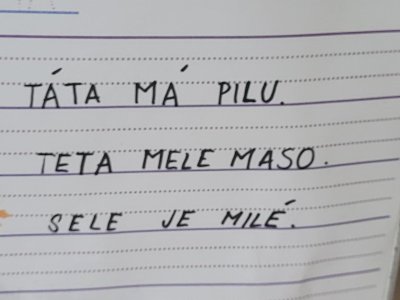 TÁTA MÁ PILU.
TETA MELE MASO.
SELE JE MILÉ.